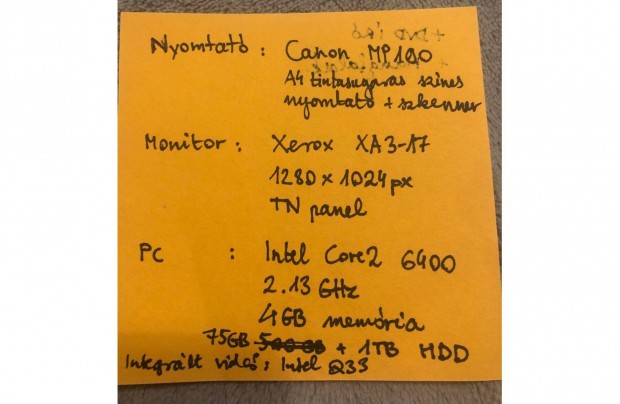 Nyomtató : Canon MP180
A4 tintasugaras színes
nyomtató + szkenner
Monitor : Xerox XA3-17
1280 x 1024 px
TN panel
PC : Intel Core2 6400
2.13 GHz
4GB memória
75GB + 1TB HDD
Integrált videó : Intel Q33